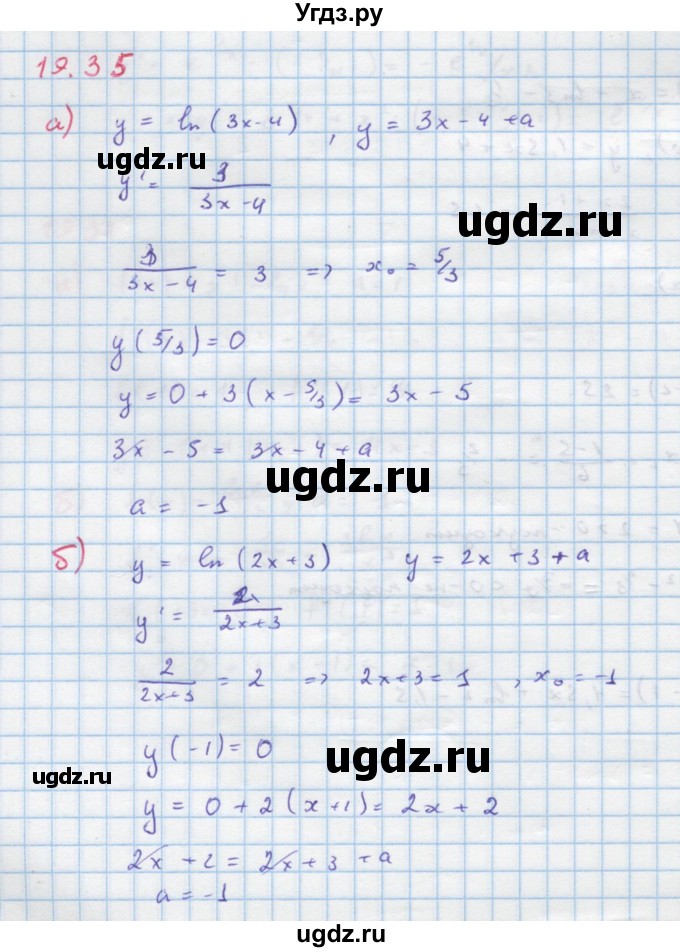 Угдз.ру
19.35
а) y = ln(3x-4) , y = 3x-4+a
ugdz.ru
y' = 3/(3x-4)
ugdz.ru
3/(3x-4) = 3 => x₀ = 5/3
y(5/3) = 0
y = 0 + 3(x - 5/3) = 3x - 5
3x - 5 = 3x - 4 + a
ugdz.ru
a = -1
б) y = ln(2x+3) y = 2x+3+a
y' = 2/(2x+3)
ugdz.ru
2/(2x+3) = 2 => 2x+3 = 1 , x₀ = -1
y(-1) = 0
ugdz.ru
ugdz.ru
y = 0 + 2(x+1) = 2x + 2
2x + 2 = 2x + 3 + a
a = -1
ugdz.ru